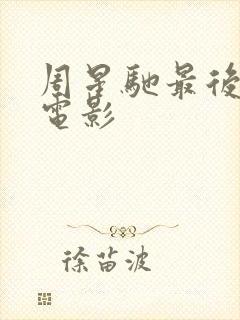 周星馳最後
電影
徐苗波